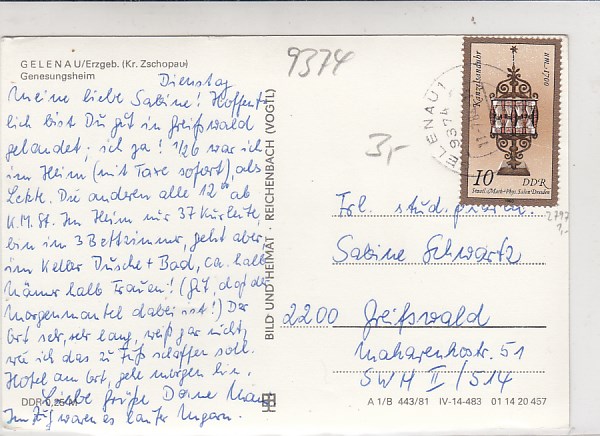 GELENAU/Erzgeb. (Kr. Zschopau)
Genesungsheim
Dienstag
Meine liebe Sabine! Hoffent-
lich bist Du gut in Greifswald
gelandet; ich ja! 1/26 war ich
im Heim (mit Taxe sofort), als
Letzte. Die anderen alle 12 ab
K.M.St. Im Heim nur 37 Kurleute,
bin im 3 Bettzimmer, geht aber,
im Keller Dusche + Bad, ca. halb
Männer halb Frauen! (Gut, daß der
Morgenmantel dabei ist!) Der
Ort sehr, sehr lang, weiß gar nicht,
wie ich das zu Fuß schaffen soll.
Hotel am Ort, gehe morgen hin.
Liebe Grüße Deine
Im Zug waren es lauter Ungarn.
DDR 0,25 M
BILD UND HEIMAT · REICHENBACH (VOGTL)
9374
3,-
GELENAU 1
9374
Kanzelsanduhr
um 1700
10 DDR
Staatl. Math.-Phys. Salon Dresden
2797
Frl. stud.
Sabine Schwartz
2200 Greifswald
Makarenkostr. 51
SWH II / 514
A 1/B 443/81 IV-14-483 01 14 20 457